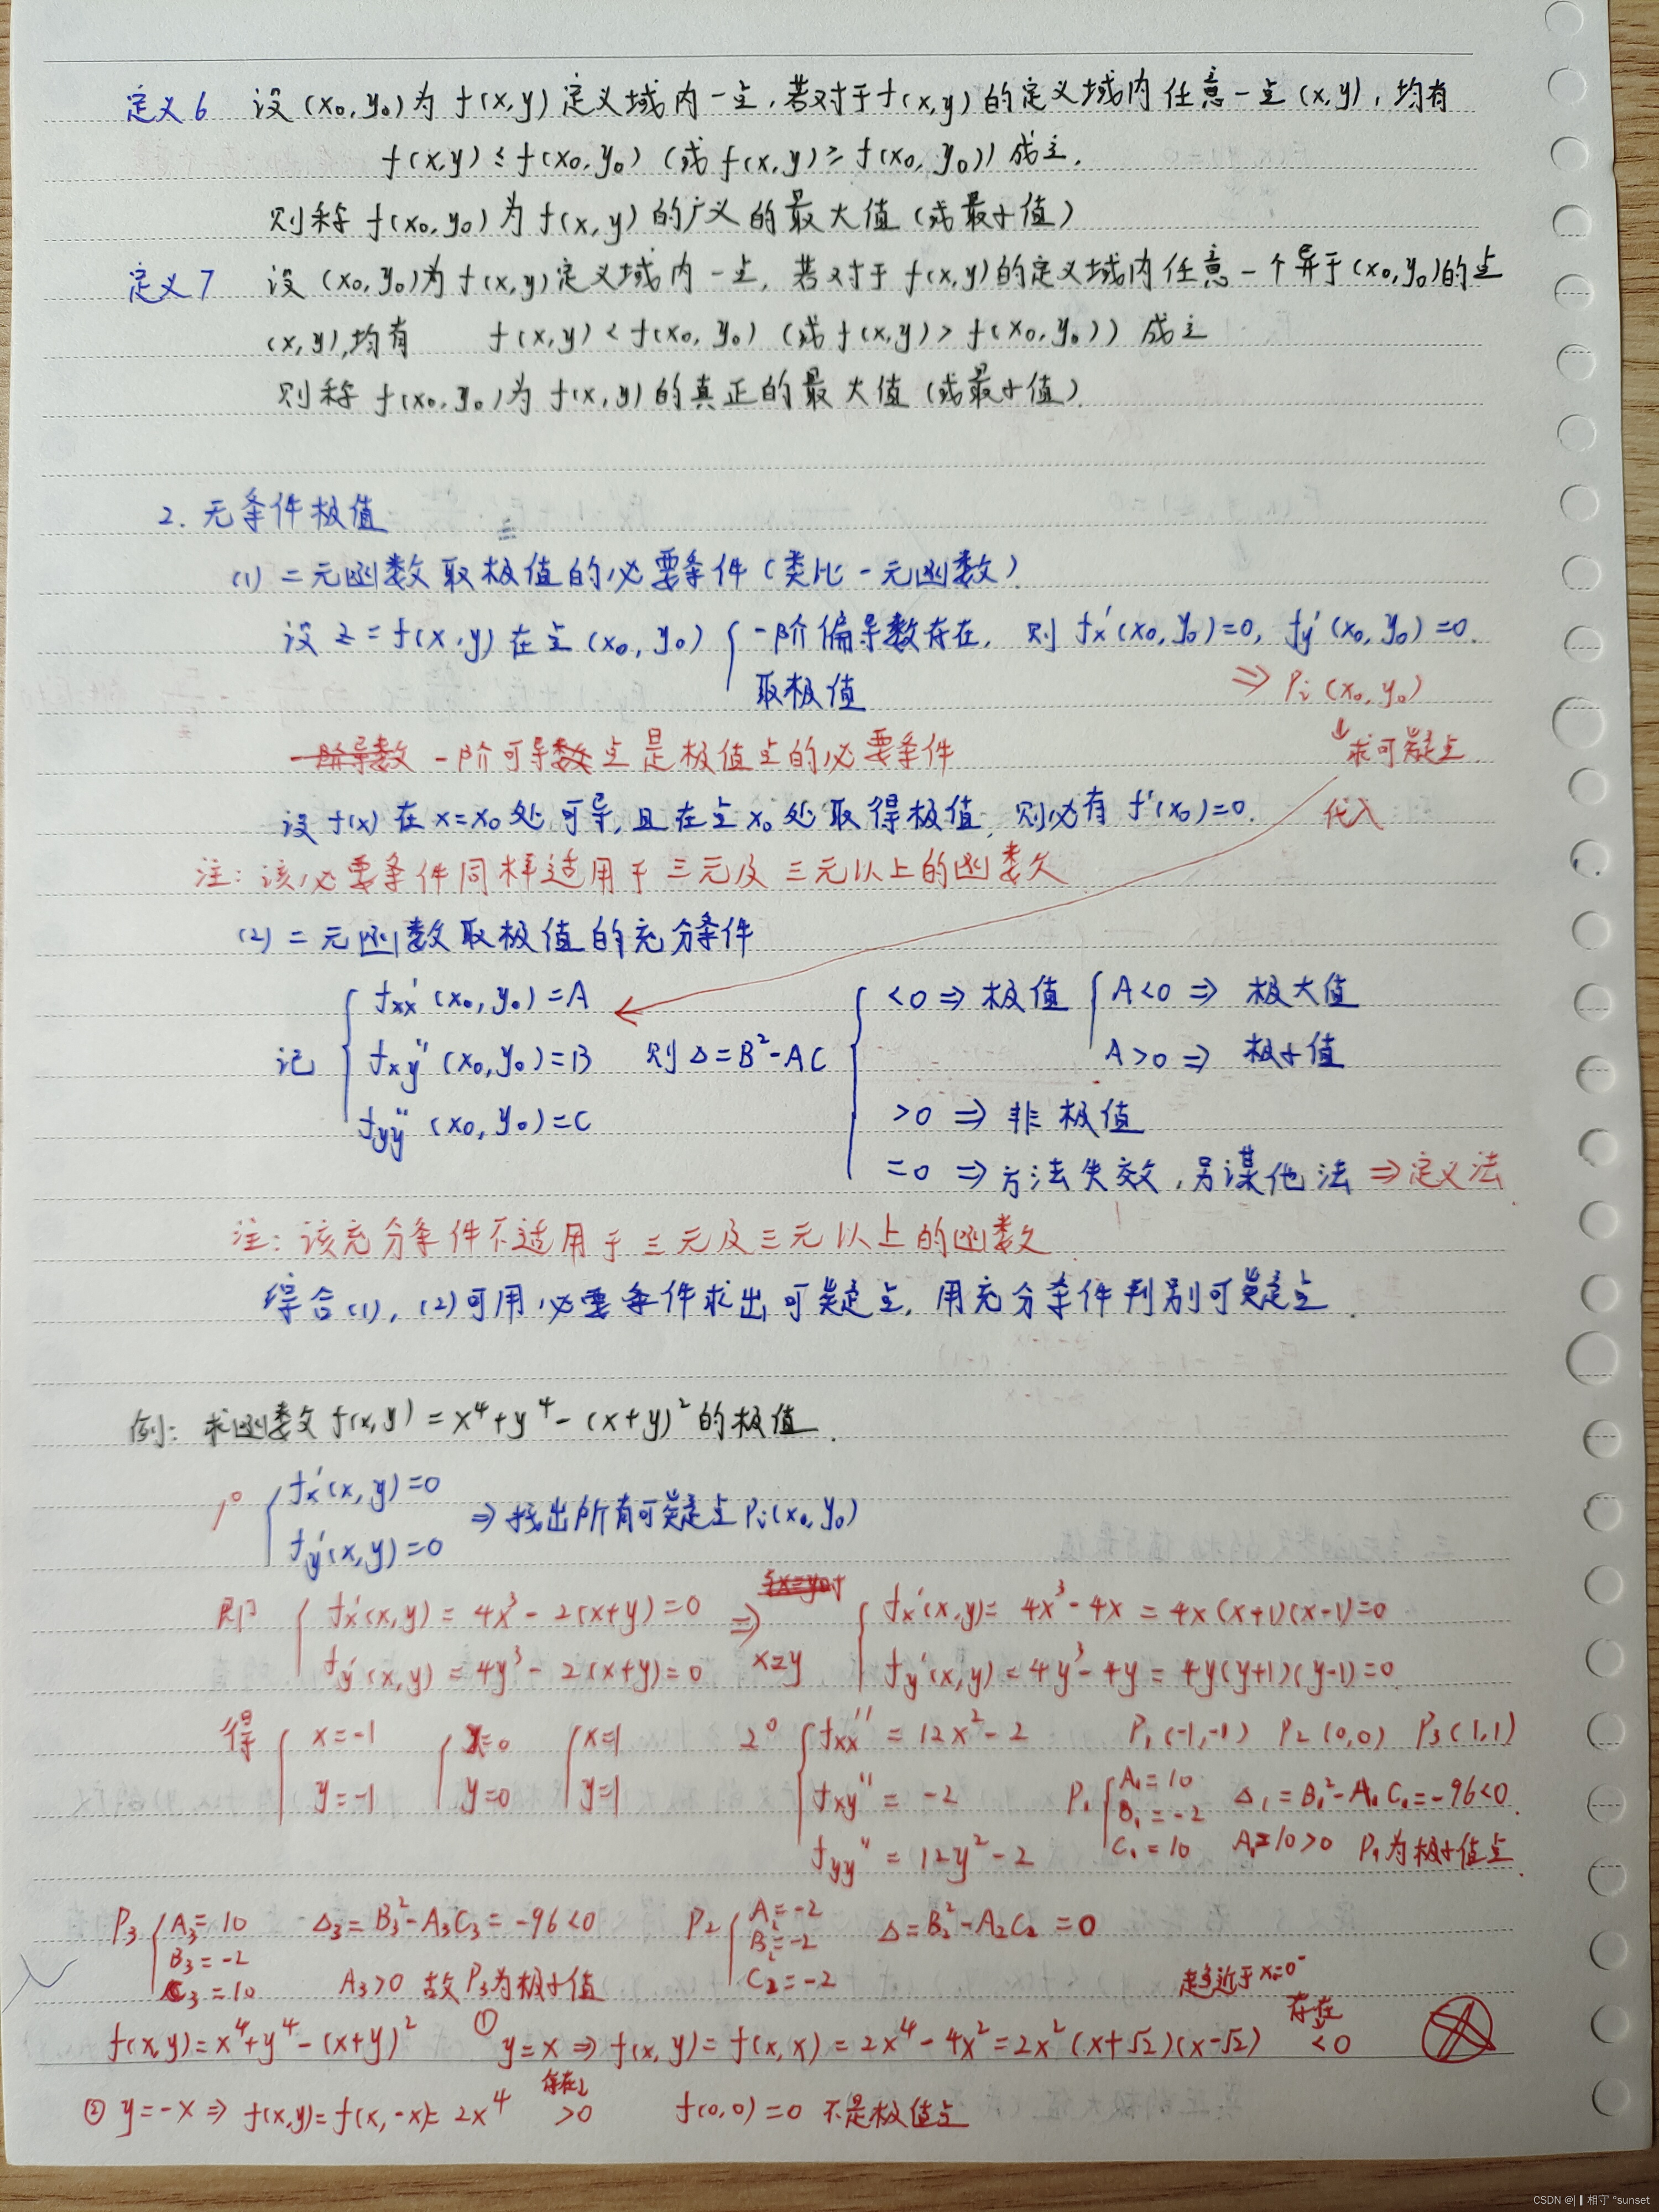 定义6 设(x₀,y₀)为f(x,y)定义域内一点,若对于f(x,y)的定义域内任意一点(x,y),均有
f(x,y)≤f(x₀,y₀)(或f(x,y)≥f(x₀,y₀))成立.
则称f(x₀,y₀)为f(x,y)的广义的最大值(或最小值)
定义7 设(x₀,y₀)为f(x,y)定义域内一点,若对于f(x,y)的定义域内任意一个异于(x₀,y₀)的点
(x,y),均有 f(x,y)<f(x₀,y₀)(或f(x,y)>f(x₀,y₀))成立
则称f(x₀,y₀)为f(x,y)的真正的最大值(或最小值).
2.无条件极值
(1)二元函数取极值的必要条件(类比一元函数)
设z=f(x,y)在点(x₀,y₀){一阶偏导数存在, 则fx'(x₀,y₀)=0, fy'(x₀,y₀)=0.
取极值 ⇒Pi(x₀,y₀)
↓求可疑点
一阶导数 一阶可导数点是极值点的必要条件
设f(x)在x=x₀处可导,且在点x₀处取得极值,则必有f'(x₀)=0. 代入
注:该必要条件同样适用于三元及三元以上的函数
(2)二元函数取极值的充分条件
记{fxx'(x₀,y₀)=A
fxy''(x₀,y₀)=B 则Δ=B²-AC
fyy''(x₀,y₀)=C
{<0⇒极值{A<0⇒极大值
A>0⇒极小值
>0⇒非极值
=0⇒方法失效,另谋他法⇒定义法
注:该充分条件不适用于三元及三元以上的函数
综合(1),(2)可用必要条件求出可疑点,用充分条件判别可疑点.
例:求函数f(x,y)=x⁴+y⁴-(x+y)²的极值.
1°{fx'(x,y)=0
fy'(x,y)=0 ⇒找出所有可疑点Pi(x₀,y₀)
即{fx'(x,y)=4x³-2(x+y)=0
fy'(x,y)=4y³-2(x+y)=0
⇒x=y
{fx'(x,y)=4x³-4x=4x(x+1)(x-1)=0
fy'(x,y)=4y³-4y=4y(y+1)(y-1)=0
得{x=-1
y=-1
{x=0
y=0
{x=1
y=1
2°{fxx''=12x²-2
fxy''=-2
fyy''=12y²-2
P₁(-1,-1) P₂(0,0) P₃(1,1)
P₁{A₁=10
B₁=-2
C₁=10
Δ₁=B₁²-A₁C₁=-96<0.
A₁=10>0 P₁为极小值点.
P₃{A₃=10
B₃=-2
C₃=10
Δ₃=B₃²-A₃C₃=-96<0
A₃>0 故P₃为极小值
P₂{A₂=-2
B₂=-2
C₂=-2
Δ=B₂²-A₂C₂=0
趋近于x=0⁻
f(x,y)=x⁴+y⁴-(x+y)² ①y=x⇒f(x,y)=f(x,x)=2x⁴-4x²=2x²(x+√2)(x-√2) 存在<0
②y=-x⇒f(x,y)=f(x,-x)=2x⁴ 存在>0 f(0,0)=0 不是极值点
CSDN @|▎相守 °sunset